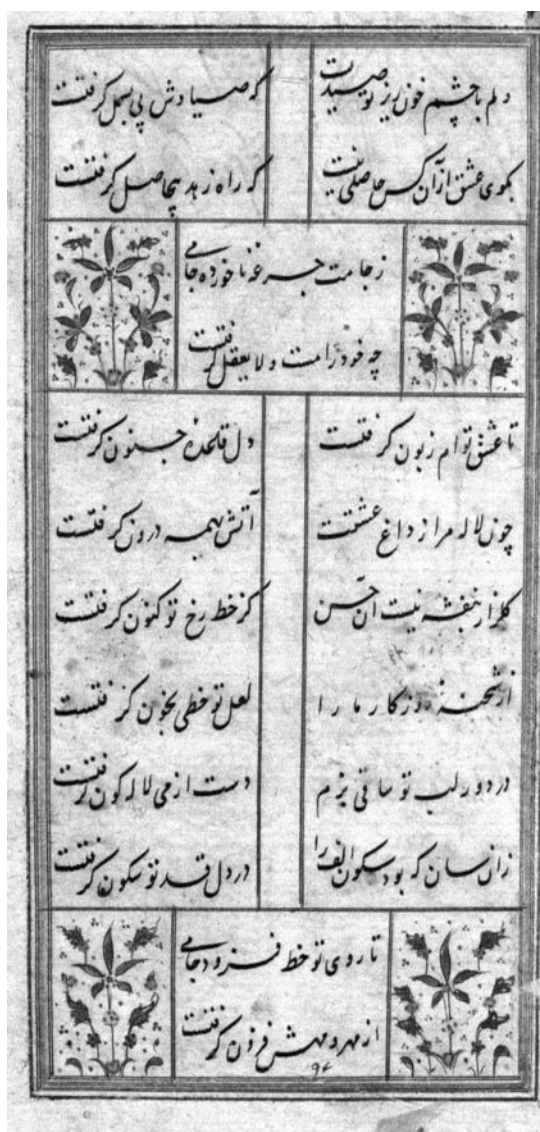 دلم با چشم خون ریز تو صیدیت
که صیادش پی بسمل گرفتست
بکوی عشق از آن کس حاصلی نیست
که راه زهد بیحاصل گرفتست
ز جامت جرعه ناخورده جامی
چه خود را مست و لایعقل گرفتست
تا عشق توام زبون گرفتست
دل قاعده جنون گرفتست
چون لاله مرا ز داغ عشقت
آتش همه درون گرفتست
گلزار بنفشه نیست آن حسن
کز خط رخ تو کنون گرفتست
از شحنه روزگار ما را
لعل تو خطی بخون گرفتست
در دور لب تو ساقی بزم
دست از می لاله گون گرفتست
زان سان که بود سکون الف را
در دل قد تو سکون گرفتست
تا روی تو خط فزود جامی
از مهر و مهش فزون گرفتست